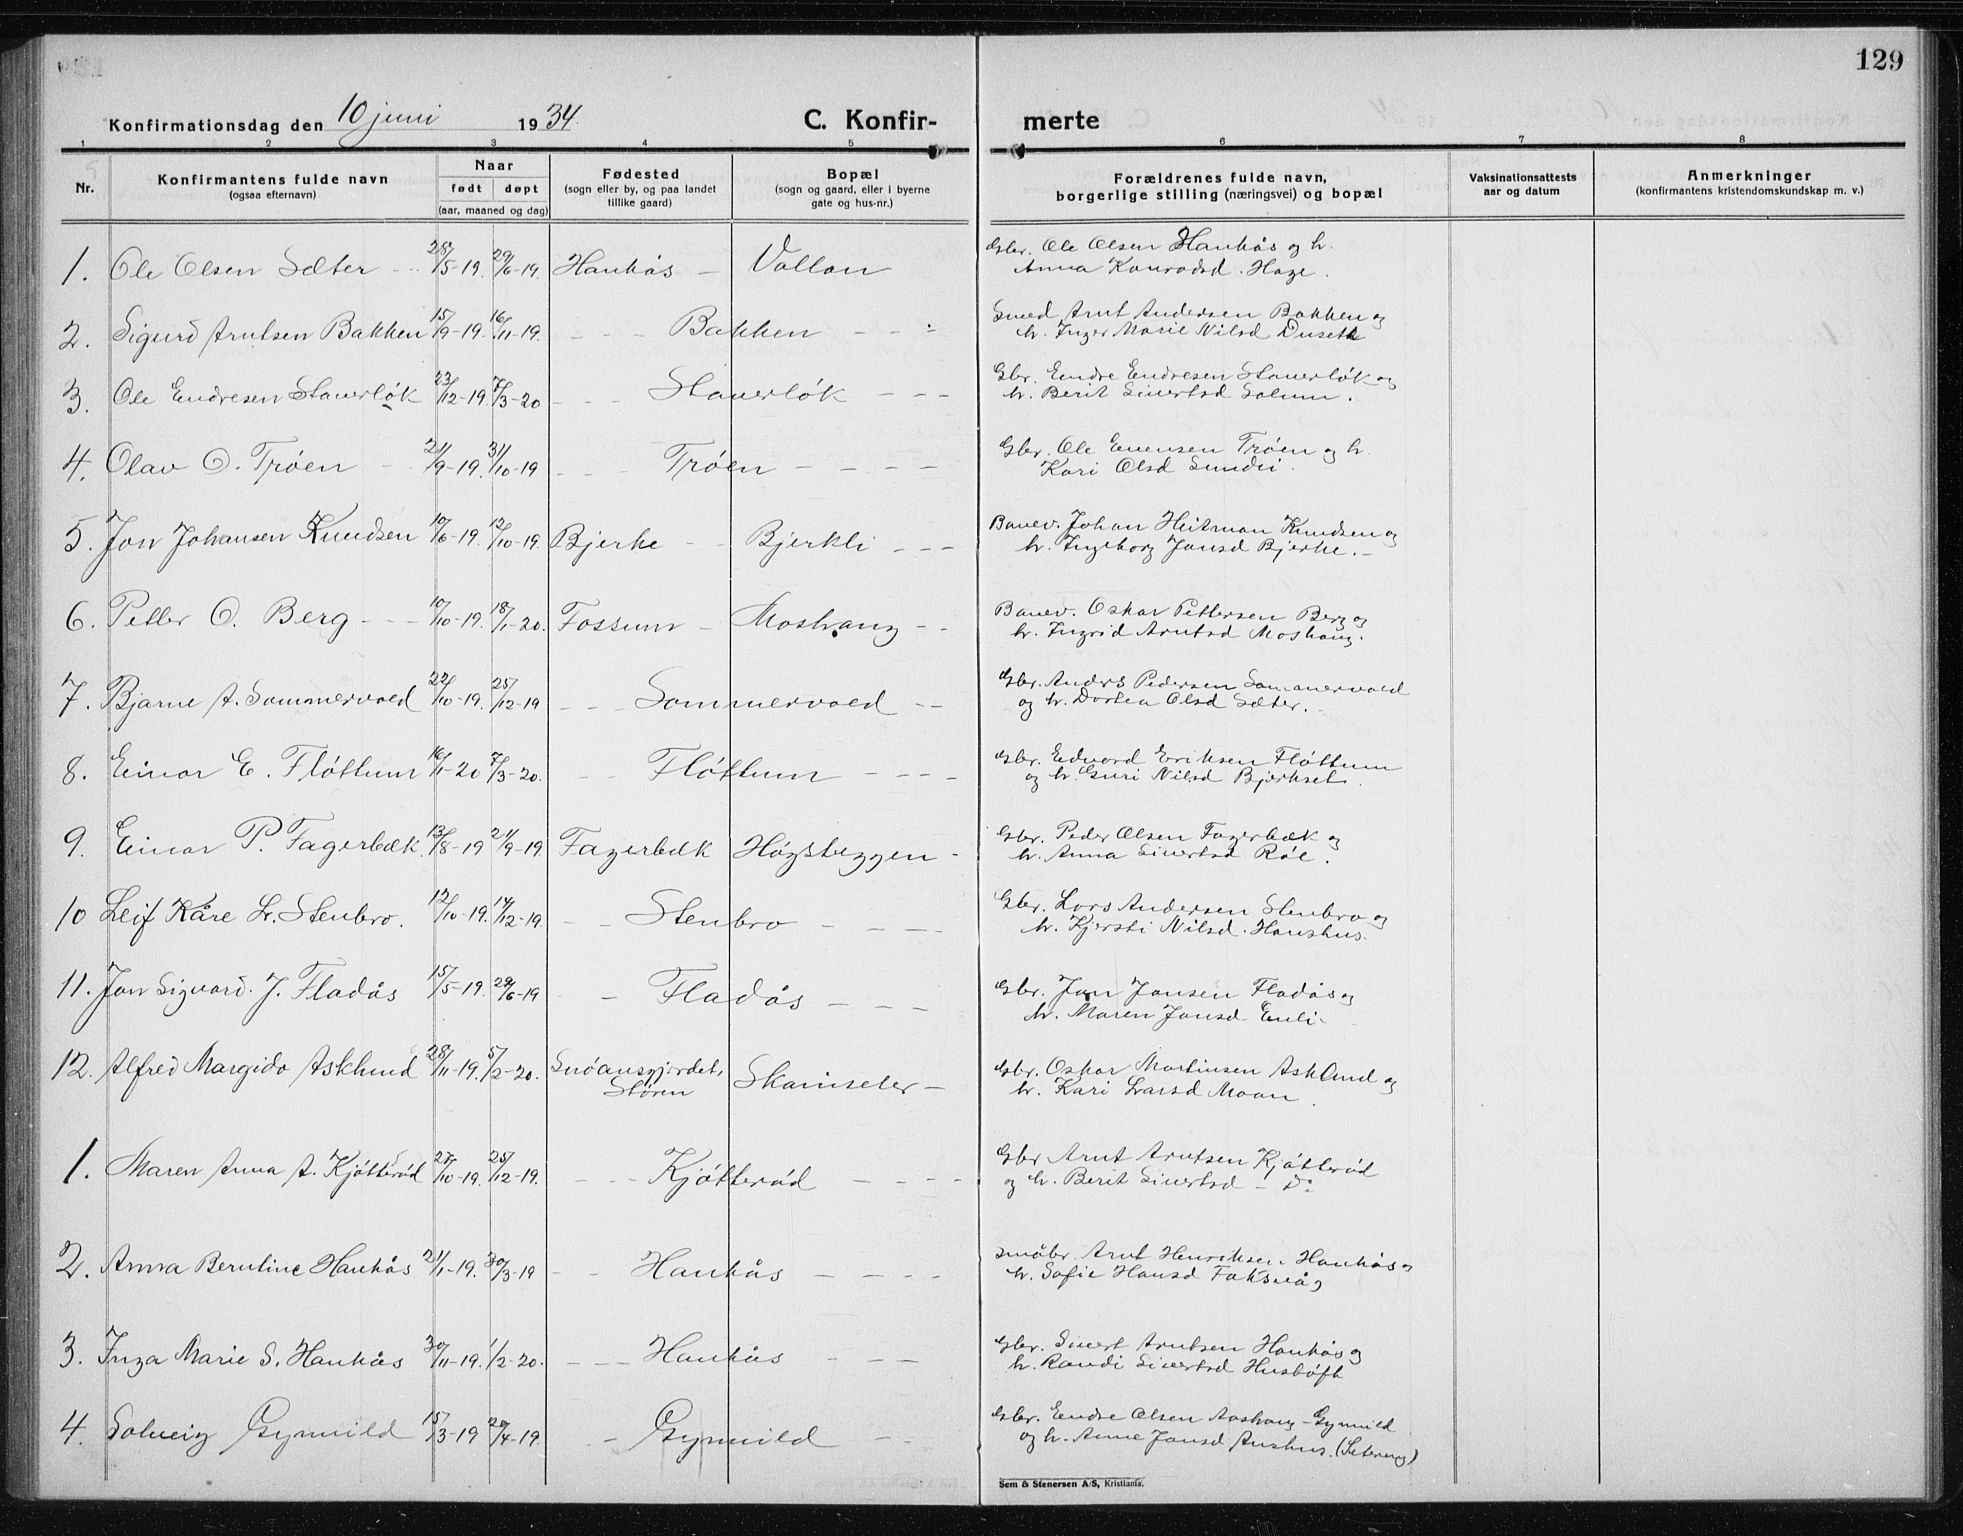 129
Konfirmationsdag den 10 juni 1934. C. Konfir- merte
1 2 3 4 5 6 7 8
Nr. Konfirmantens fulde navn (ogsaa efternavn) Naar født døpt (aar, maaned og dag) Fødested (sogn eller by, og paa landet tillike gaard) Bopæl (sogn og gaard, eller i byerne gate og hus-nr.) Forældrenes fulde navn, borgerlige stilling (næringsvei) og bopæl Vaksinationsattests aar og datum Anmerkninger (konfirmantens kristendomskundskap m. v.)
1. Ole Olsen Sæter - 28/5-19. 29/6-19. Haukås - Vollan Gbr. Ole Olsen Haukås og h.
Anna Konradsd. Hage.
2. Sigurd Arntsen Bakken 15/9-19. 16/11-19. - - - Bakken - - - Smed Arnt Andersen Bakken og
h. Inger Marie Nilsd Duseth
3. Ole Endresen Stauerløk 23/12-19. 7/3-20 - - - Stauerløk - - - Gbr. Endre Endresen Stauerløk og
h. Berit Sivertsd Solum.
4. Olav O. Trøen - 21/9-19. 31/10-19 - - - Trøen - - - - Gbr. Ole Evensen Trøen og h.
Kari Olsd Sundli.
5. Jon Johansen Knudsen 10/6-19. 12/10-19. Bjerke - - Bjerkli - - - Banev. Johan Heitman Knudsen og
h. Ingeborg Jonsd Bjerke. -
6. Petter O. Berg - - - 10/10-19. 18/1-20. Fossum - Moshaug - - Banev. Oskar Pettersen Berg og
h. Ingrid Arntsd Moshaug.
7. Bjarne A. Sommervold 22/10-19. 25/12-19 - - - Sommervold - - Gbr. Anders Pedersen Sommervold
og h. Dortea Olsd Sæter. -
8. Einar E. Fløttum 16/1-20 7/3-20. - - Fløttum - - - - Gbr. Edvard Eriksen Fløttum
og h. Guri Nilsd Bjerkset.
9. Einar P. Fagerbæk. 13/8-19 21/9-19. Fagerbæk Høgsteggen - Gbr. Peder Olsen Fagerbæk og
h. Anna Sivertsd Røe.
10 Leif Kåre L. Stenbro. 12/10-19. 14/12-19 - - Stenbro - - - - Gbr. Lars Andersen Stenbro og
h. Kjersti Nilsd. Haushus.
11. Jon Sigvard. J. Fladås 15/5-19. 29/6-19 - - Fladås - - - Gbr. Jon Jonsen Fladås og
h. Maren Jonsd Enli.
12. Alfred Margido Asklund 28/11-19. 5/2-20. Snøansgjerdet, Støren Skainseter - Gbr. Oskar Martinsen Asklund og
h. Kari Larsd Moan.
1. Maren Anna A. Kjøtterød 27/10-19. 25/12-19. - - - Kjøtterød - - - - Gbr Arnt Arntsen Kjøtterød
og h. Berit Sivertsd - Do
2. Anna Berntine Haukås 21/1-19. 30/3-19 - - Haukås - - - - Småbr. Arnt Henriksen Haukås og
h. Sofie Hansd Foksnåg
3. Inga Marie S. Haukås 30/11-19. 1/2-20. - - - Haukås - - - Gbr. Sivert Arntsen Haukås og
h. Randi Sivertsd Husbøft
4. Solveig Gynnild 15/3-19 20/4-19. - Gynnild - - Gbr. Endre Olsen Aashaug - Gynnild
og h. Anne Jonsd Aushus. (Seteraug)
Sem & Stenersen A/S, Kristiania.